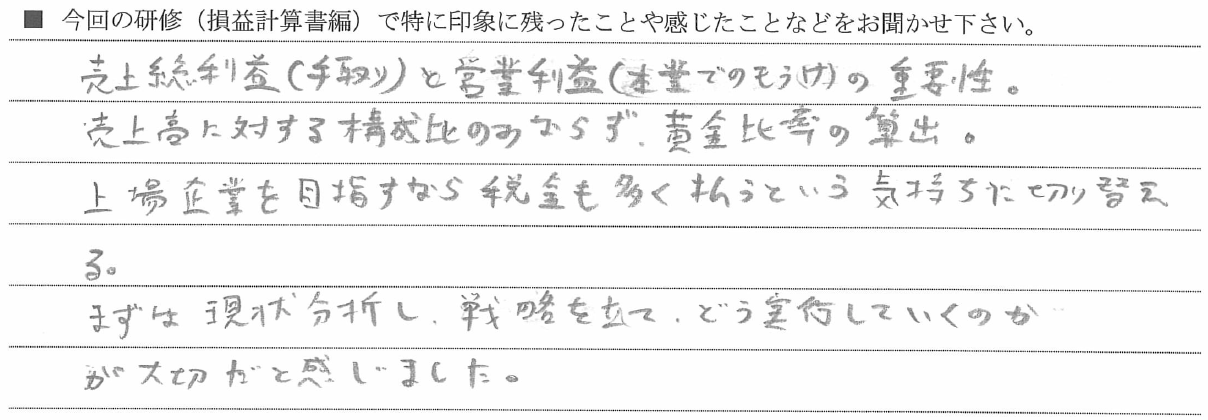 ■ 今回の研修（損益計算書編）で特に印象に残ったことや感じたことなどをお聞かせ下さい。
売上総利益(手取り)と営業利益(本業でのもうけ)の重要性。
売上高に対する構成比のみならず、黄金比率の算出。
上場企業を目指すなら税金も多く払うという気持ちに切り替え
る。
まずは現状分析し、戦略を立て、どう実行していくのか
が大切だと感じました。